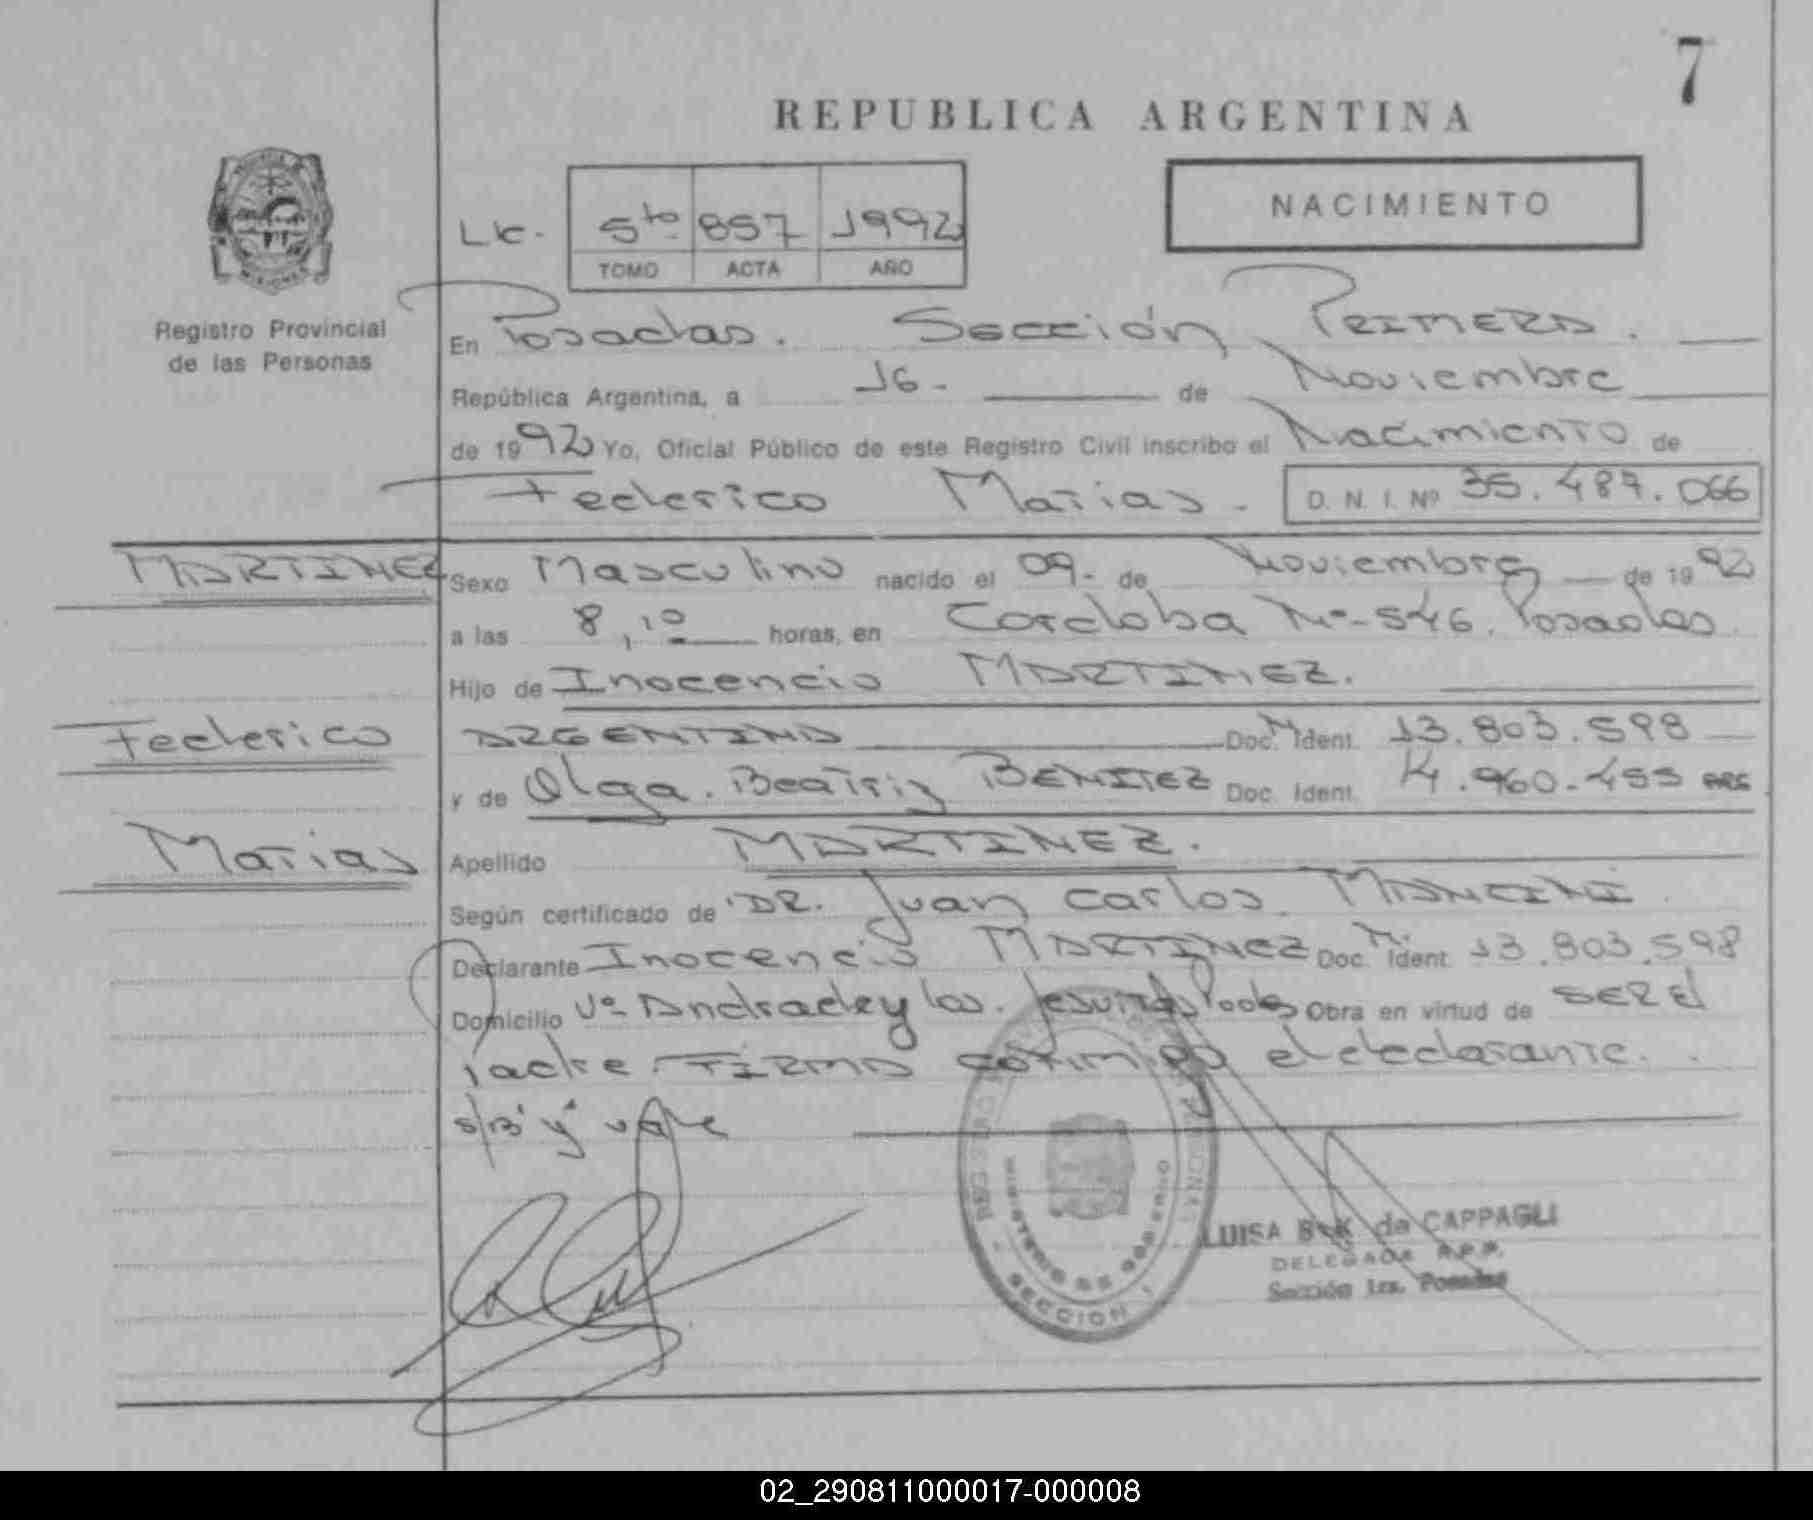 7
REPUBLICA ARGENTINA
NACIMIENTO
5to 857 1992
TOMO ACTA AÑO
MISIONES
Registro Provincial
de las Personas
En Posadas. Sección Primera.
República Argentina, a 16.- de Noviembre
de 1992 Yo, Oficial Público de este Registro Civil inscribo el Nacimiento de
Federico Matias. D. N. I. Nº 35.487.066
MARTINEZ
Sexo Masculino nacido el 09.- de Noviembre de 1992
a las 8,10 horas, en Cordoba Nº-546. Posadas.
Hijo de Inocencio MARTINEZ.
Federico
ARGENTINO Doc. M. Ident. 13.803.598
y de Olga Beatriz BENITEZ Doc. Ident. 14.960.455 ARG
Matias
Apellido MARTINEZ.
Según certificado de DR. Juan Carlos MANCINI.
Declarante Inocencio MARTINEZ Doc. M. Ident. 13.803.598
Domicilio Vº Andrade y los Jesuitas Pdas Obra en virtud de SER El
Padre FIRMA conmigo el declarante.
s/B' y' vale
REGISTRO PROVINCIAL DE LAS PERSONAS
MINISTERIO DE GOBIERNO
SECCION 1
LUISA B. K. de CAPPAGLI
DELEGADA R.P.P.
Sección 1ra. Posadas
02_290811000017-000008